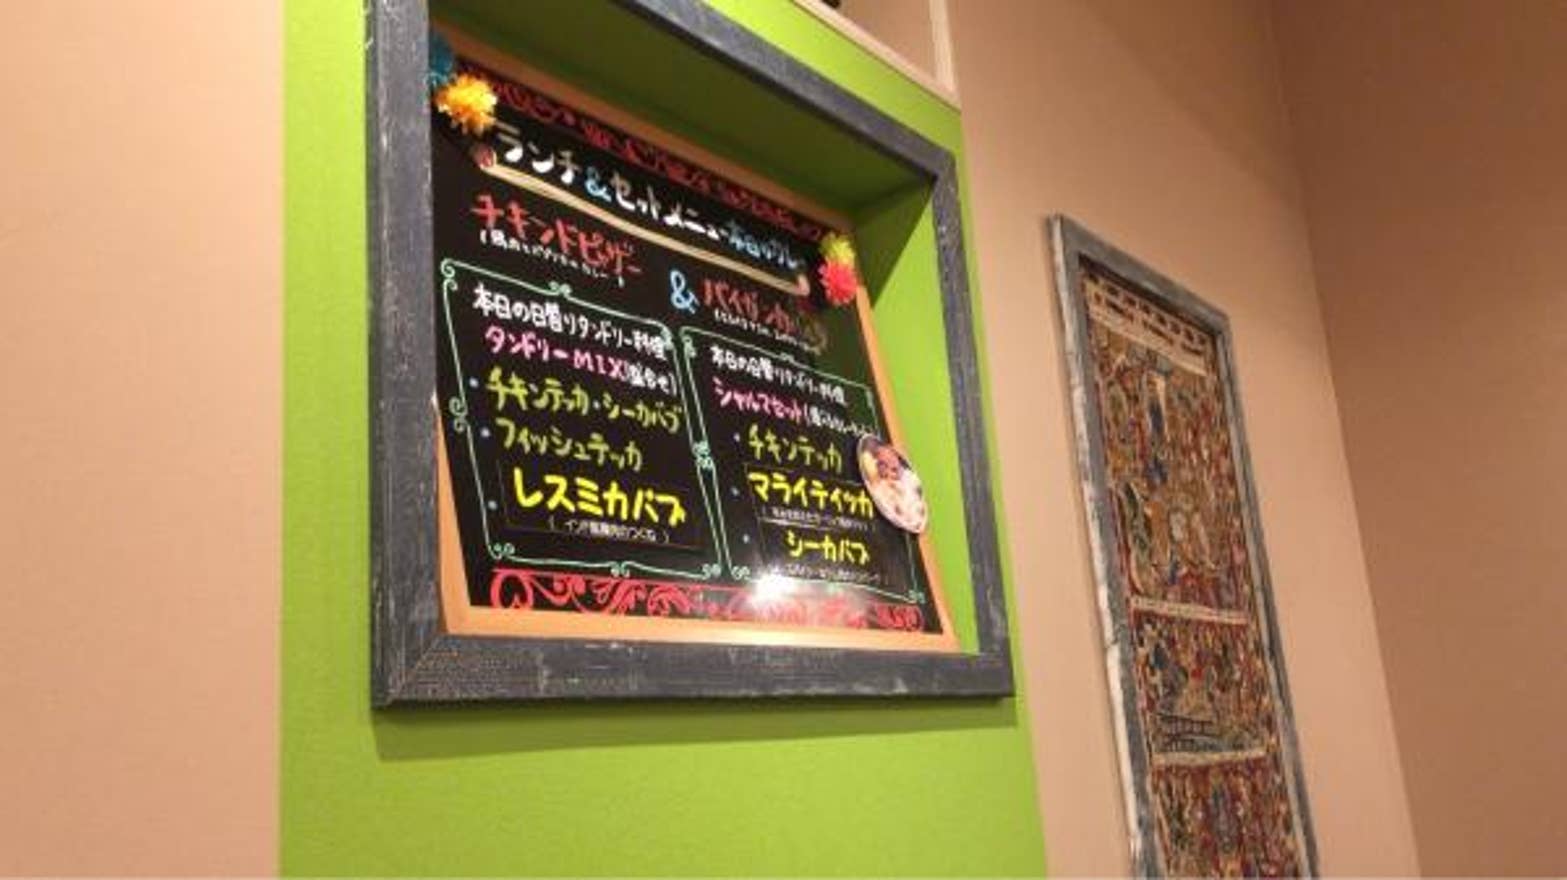 ランチ&セットメニュー本日のカレー
チキンドピザー
& バイガンカ
本日の日替りタンドリー料理
タンドリーMIX(盛合せ)
・チキンテッカ・シーカバブ
・フィッシュテッカ
・レスミカバブ
( インド風鶏肉のつくね )
本日の日替りタンドリー料理
シャルマセット(
・チキンテッカ
・マライティッカ
・シーカバブ